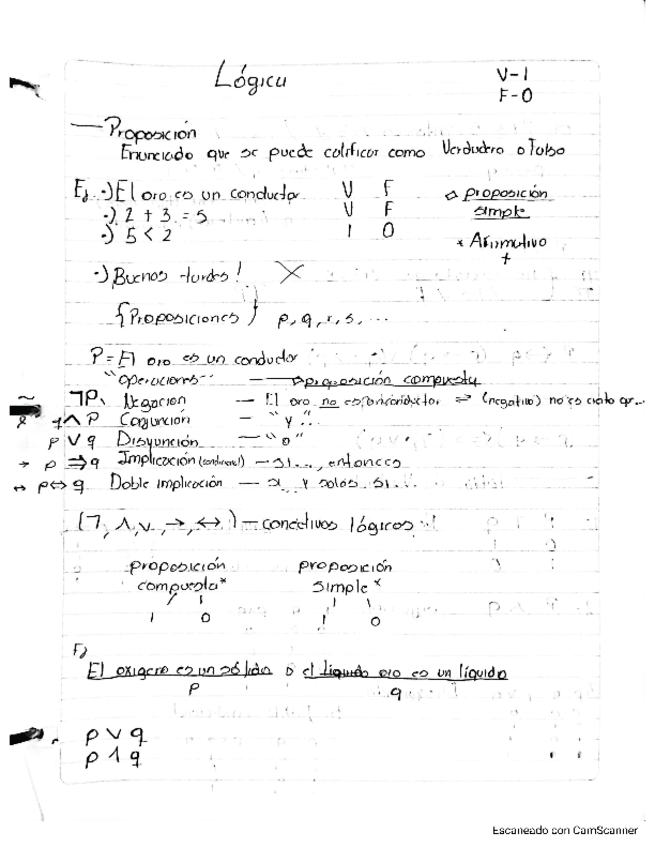 Lógica
V-1
F-0
Proposición
Enunciado que se puede calificar como Verdadero o Falso
Ej. -) El oro es un conductor V F
-) 2 + 3 = 5 V F
-) 5 < 2 1 0
proposición
simple
* Afirmativo
+
-) Buenos tardes! X
{Proposiciones} p, q, r, s, ...
P = El oro es un conductor
"operaciones" proposición compuesta
~ ¬P, Negación — El oro no es conductor ⇒ (negativo) no es cierto qr...
& q ∧ P Conjunción — "y"...
p ∨ q Disyunción — "o"
→ p ⇒ q Implicación (condicional) — si..., entonces
↔ p ↔ q Doble implicación — si y solos si...
(¬, ∧, ∨, →, ↔) — conectivos lógicos
proposición compuesta*
1 0
proposición simple*
1 0
Ej
El oxigeno es un sólido o el liquido oro es un líquido
p q
p ∨ q
p ∧ q
Escaneado con CamScanner